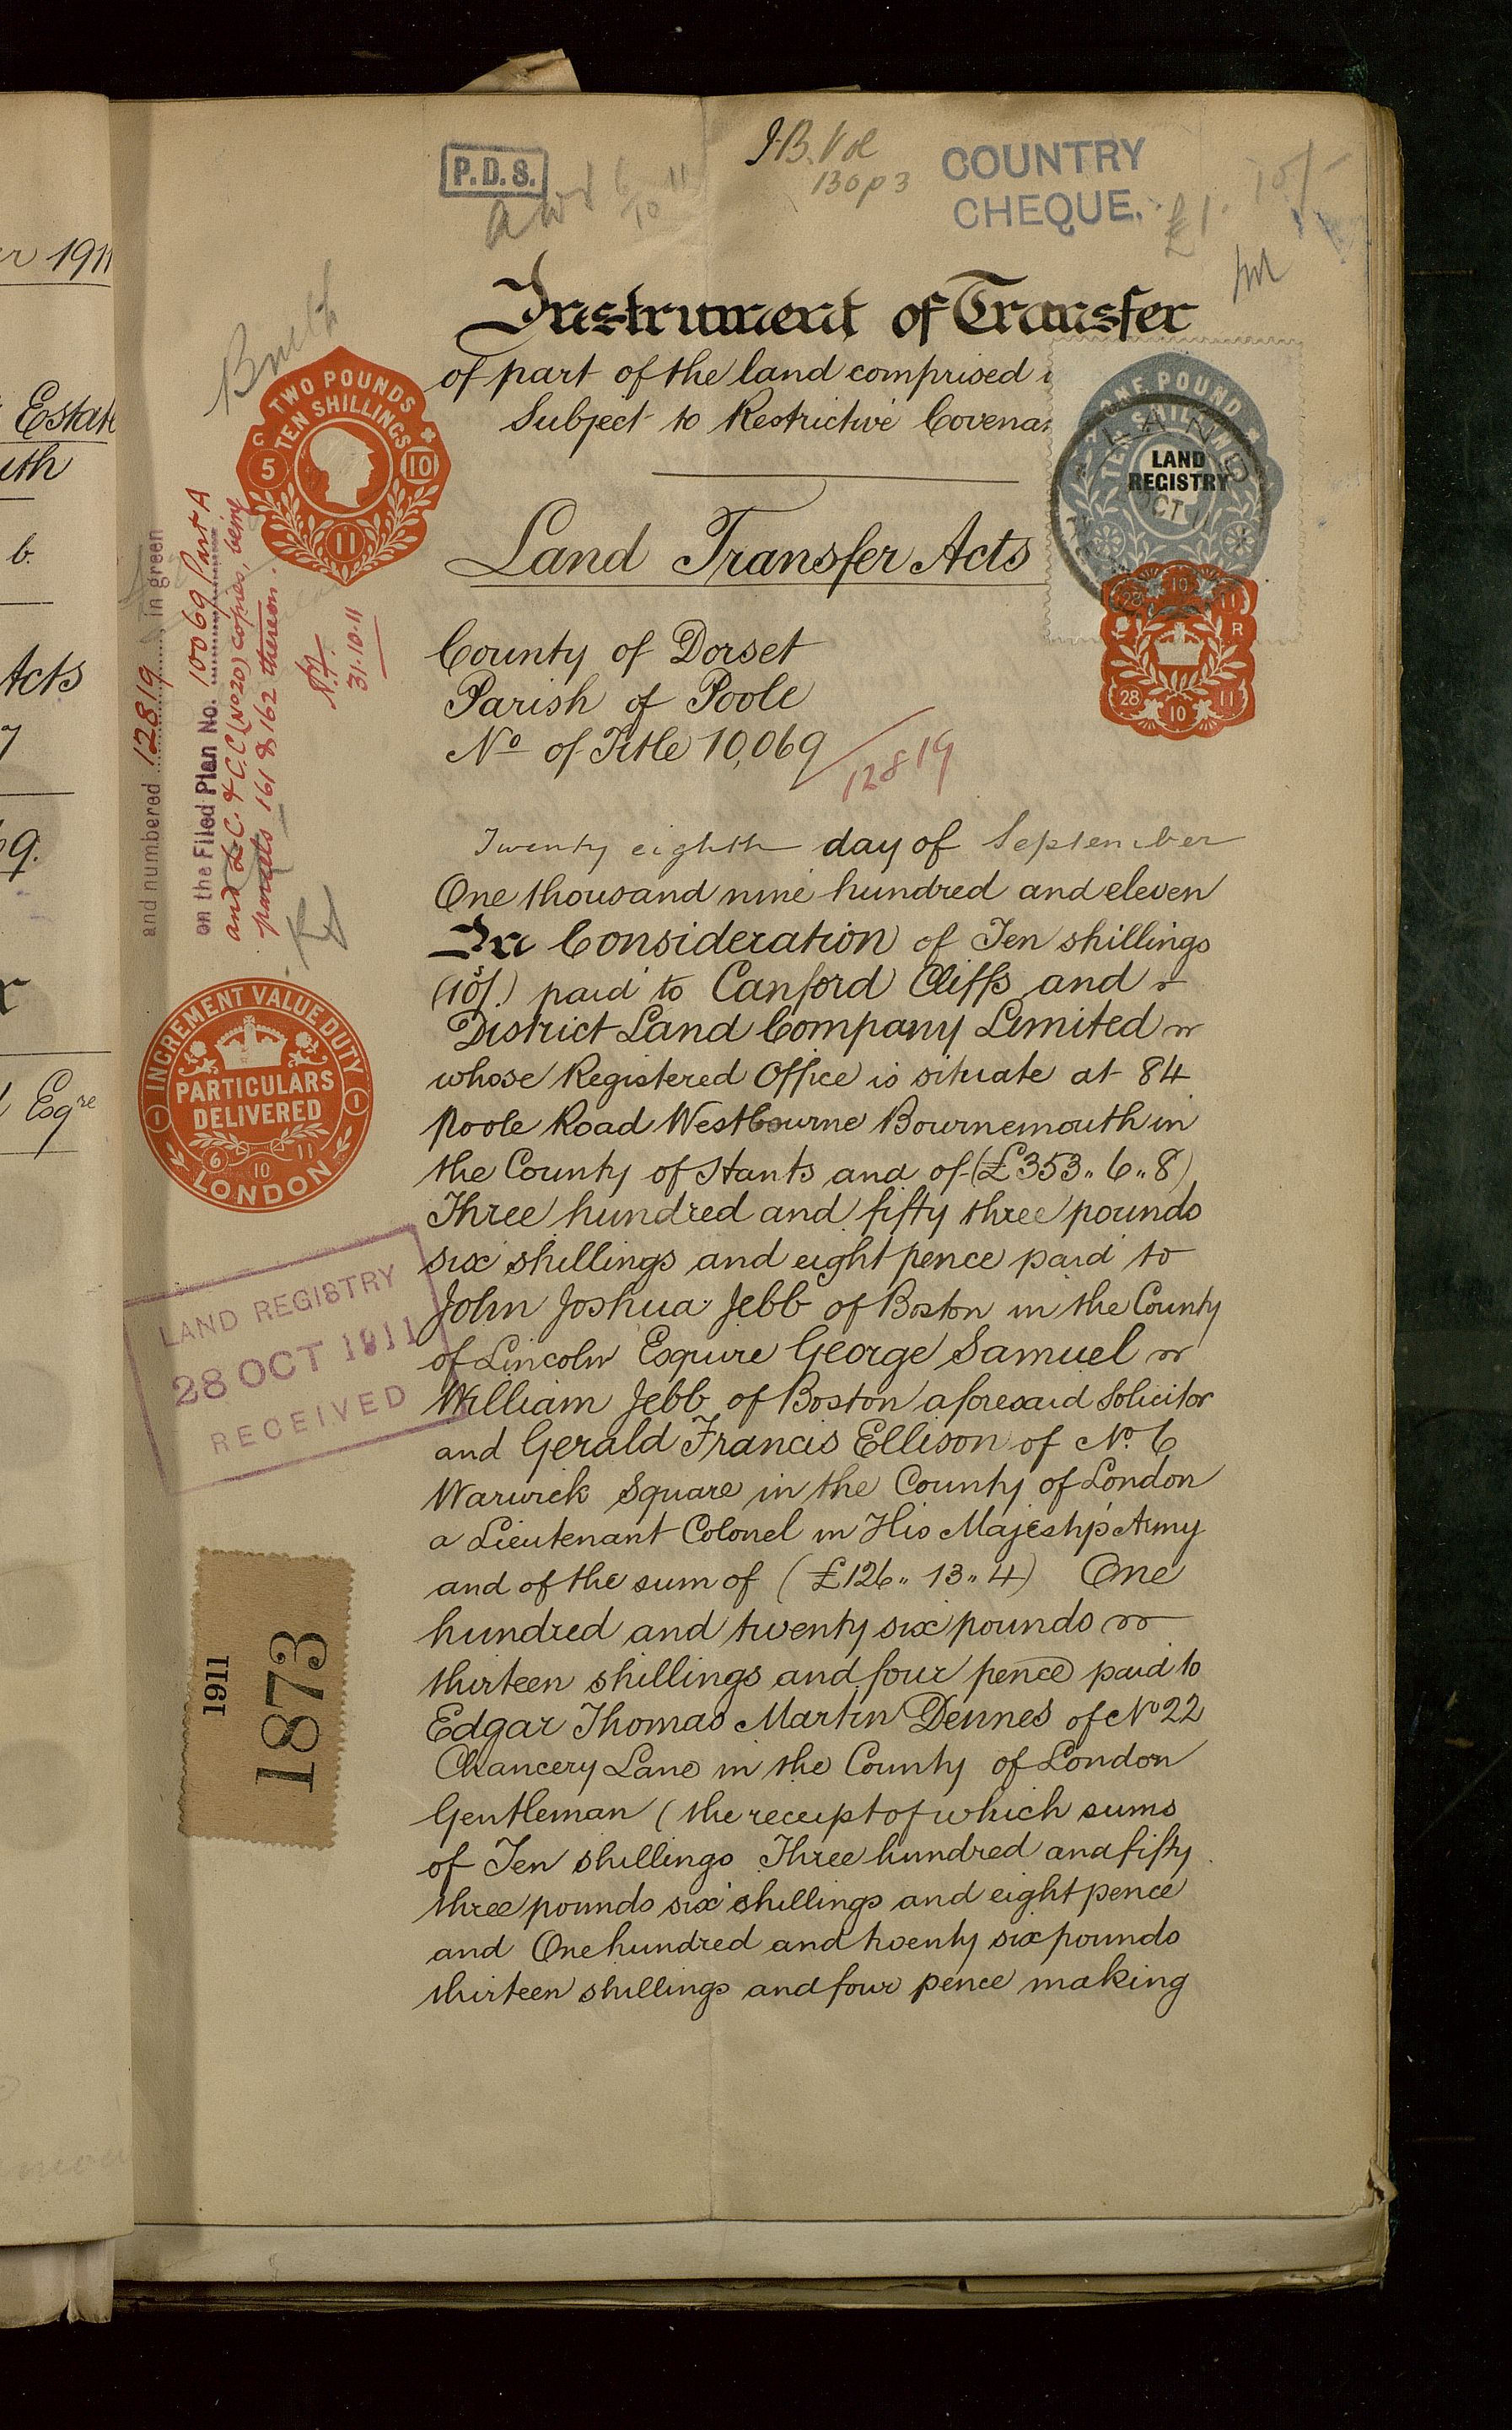 P.D.S.
130 p 3
COUNTRY
CHEQUE.
£1. 10/-
Instrument of Transfer
of part of the land comprised
Subject to Restrictive
Land Transfer Acts
County of Dorset
Parish of Poole
No of Title 10,069
12819
Twenty eighth day of September
One thousand nine hundred and eleven
In Consideration of Ten shillings
(10/.) paid to Canford Cliffs and
District Land Company Limited
whose Registered Office is situate at 84
Poole Road Westbourne Bournemouth in
the County of Hants and of (£353.. 6.. 8)
Three hundred and fifty three pounds
six shillings and eight pence paid to
John Joshua Jebb of Boston in the County
of Lincoln Esquire George Samuel
William Jebb of Boston aforesaid Solicitor
and Gerald Francis Ellison of No. 6
Warwick Square in the County of London
a Lieutenant Colonel in His Majesty's Army
and of the sum of (£126.. 13.. 4) One
hundred and twenty six pounds
thirteen shillings and four pence paid to
Edgar Thomas Martin Dennes of No 22
Chancery Lane in the County of London
Gentleman (the receipt of which sums
of Ten shillings Three hundred and fifty
three pounds six shillings and eight pence
and One hundred and twenty six pounds
thirteen shillings and four pence making
TWO POUNDS
TEN SHILLINGS
5 10
11
ONE POUND
TEN SHILLINGS
LAND
REGISTRY
OCT 11
28 10 11
R
28 10 11
and numbered 12819, in green
on the Filed Plan No. 10069 Part A
and L.C. & C.C. (No 20) copies, being
parcels 161 & 162 thereon.
31.10.11
INCREMENT VALUE DUTY
PARTICULARS
DELIVERED
6 10 11
LONDON
LAND REGISTRY
28 OCT 1911
RECEIVED
1911
1873
1911
Estate
b.
Acts
9.
Esqre